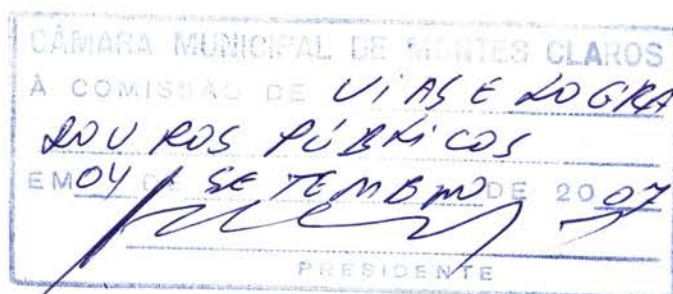 CÂMARA MUNICIPAL DE MONTES CLAROS
À COMISSÃO DE VIAS E LOGRA
DOUROS PÚBLICOS
EM 04 DE SETEMBRO DE 2007
PRESIDENTE